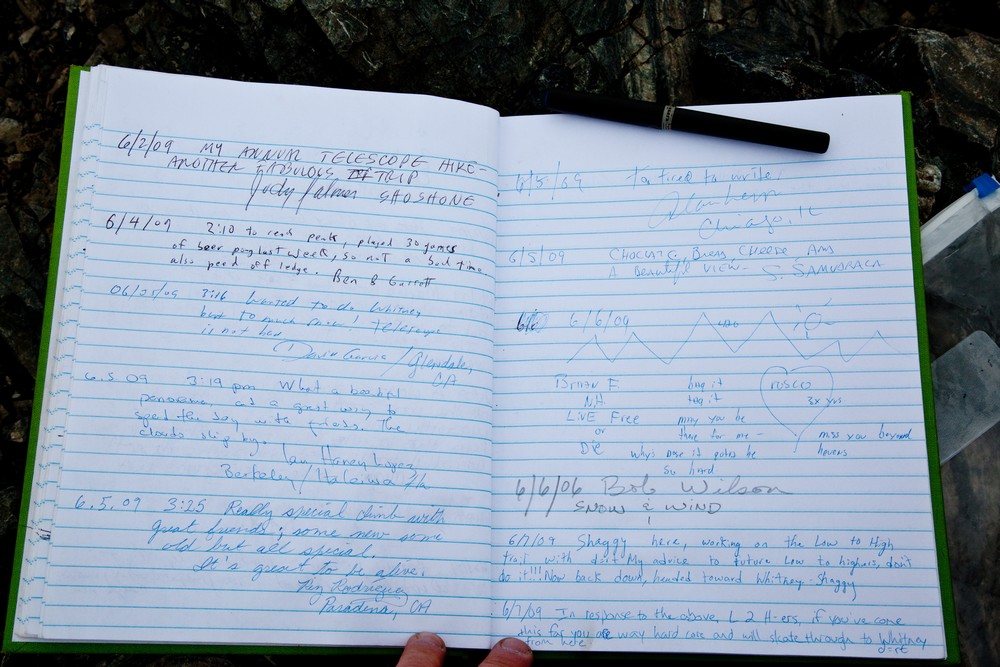 6/2/09 MY ANNUAL TELESCOPE HIKE-
ANOTHER FABULOUS TRIP
Jody Palmer SHOSHONE
6/4/09 2:10 to reach peak, played 30 games
of beer pong last week, so not a bad time
also peed off ledge. Ben B Garrett
06/05/09 3:16 Wanted to do Whitney
but to much snow! Telescope
is not bad
David Garcia / Glendale,
CA
6.5.09 3:19 pm What a beautiful
panorama, and a great way to
spend the day with friends. The
clouds slip by.
Ian Haney Lopez
Berkeley/Haleiwa
6.5.09 3:25 Really special climb with
great friends; some new some
old but all special.
It's great to be alive.
Rodriguez
Pasadena, CA
6/5/09 to tired to write
Chicago, IL
6/5/09 CHOCLATE, BREAD, CHEESE, AND
A beautiful VIEW- S. SAMUDRALA
6/6/09
Brian F.
NH
LIVE Free
or
Die
may you be
there for me-
why does it gotta be
so hard
ROSCO
3x yrs.
miss you beyond
6/6/06 Bob Wilson
SNOW & WIND
6/7/09 Shaggy here, working on the Low to High
trail with dirt. My advice to future Low to highers, don't
do it!!! Now back down, headed toward Whitney. - Shaggy
6/7/09 In response to the above, L 2 H-ers, if you've come
this far you are way hard core and will skate through to Whitney
from here.